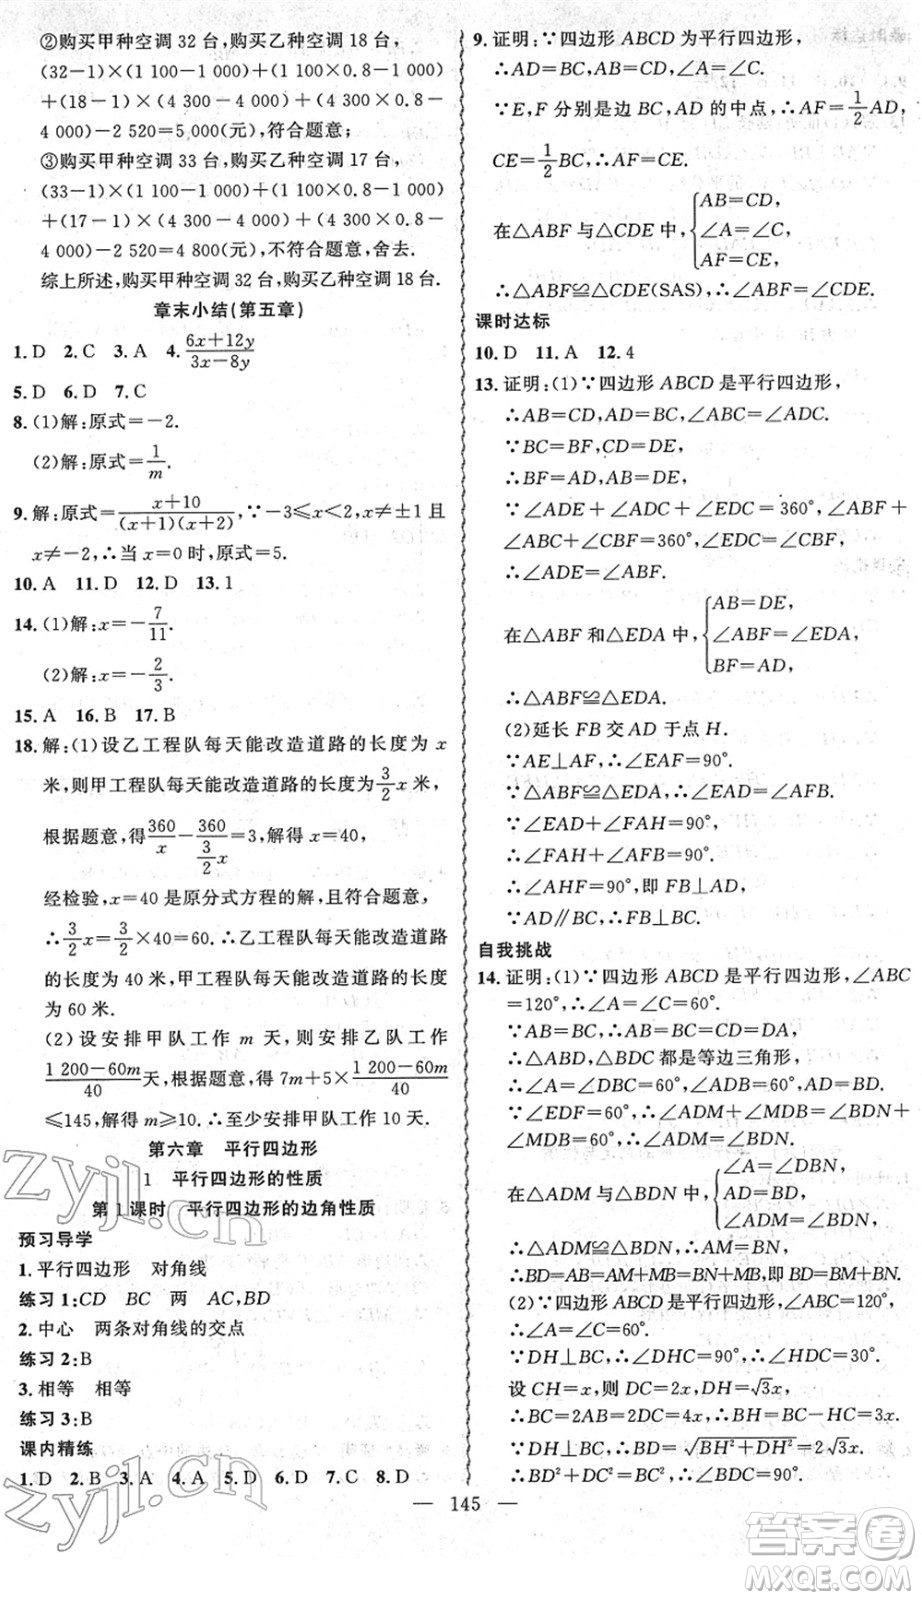 ②购买甲种空调 32 台,购买乙种空调 18 台.
(32－1)×(1 100－1 000)＋(1 100×0.8－1 000)
＋(18－1)×(4 300－4 000)＋(4 300×0.8－
4 000)－2 520＝5 000(元),符合题意;
③购买甲种空调 33 台,购买乙种空调 17 台.
(33－1)×(1 100－1 000)＋(1 100×0.8－1 000)
＋(17－1)×(4 300－4 000)＋(4 300×0.8－
4 000)－2 520＝4 800(元),不符合题意,舍去.
综上所述,购买甲种空调 32 台,购买乙种空调 18 台.
章末小结(第五章)
1. D 2. C 3. A 4. (6x+12y)/(3x−8y)
5. D 6. D 7. C
8. (1)解:原式＝－2.
(2)解:原式＝1/m.
9. 解:原式＝(x+10)/((x+1)(x+2)),∵－3≤x＜2,x≠±1 且
x≠－2,∴当 x＝0 时,原式＝5.
10. A 11. D 12. D 13. 1
14. (1)解:x＝－7/11.
(2)解:x＝－2/3.
15. A 16. B 17. B
18. 解:(1)设乙工程队每天能改造道路的长度为 x
米,则甲工程队每天能改造道路的长度为 3/2 x 米,
根据题意,得 360/x − 360/(3/2 x) ＝3,解得 x＝40,
经检验,x＝40 是原分式方程的解,且符合题意,
∴3/2 x＝3/2×40＝60.∴乙工程队每天能改造道路
的长度为 40 米,甲工程队每天能改造道路的长度
为 60 米.
(2)设安排甲队工作 m 天,则安排乙队工作
(1 200−60m)/40 天,根据题意,得 7m＋5×(1 200−60m)/40
≤145,解得 m≥10.∴至少安排甲队工作 10 天.
第六章 平行四边形
1 平行四边形的性质
第 1 课时 平行四边形的边角性质
预习导学
1. 平行四边形 对角线
练习 1:CD BC 两 AC,BD
2. 中心 两条对角线的交点
练习 2:B
3. 相等 相等
练习 3:B
课内精练
1. D 2. B 3. A 4. A 5. D 6. D 7. C 8. D
9. 证明:∵四边形 ABCD 为平行四边形,
∴AD＝BC,AB＝CD,∠A＝∠C.
∵E,F 分别是边 BC,AD 的中点,∴AF＝1/2 AD,
CE＝1/2 BC,∴AF＝CE.
在△ABF 与△CDE 中,{AB＝CD,
∠A＝∠C,
AF＝CE,
∴△ABF≌△CDE(SAS),∴∠ABF＝∠CDE.
课时达标
10. D 11. A 12. 4
13. 证明:(1)∵四边形 ABCD 是平行四边形,
∴AB＝CD,AD＝BC,∠ABC＝∠ADC.
∵BC＝BF,CD＝DE,
∴BF＝AD,AB＝DE.
∵∠ADE＋∠ADC＋∠EDC＝360°,∠ABF＋
∠ABC＋∠CBF＝360°,∠EDC＝∠CBF,
∴∠ADE＝∠ABF.
在△ABF 和△EDA 中,{AB＝DE,
∠ABF＝∠EDA,
BF＝AD,
∴△ABF≌△EDA.
(2)延长 FB 交 AD 于点 H.
∵AE⊥AF,∴∠EAF＝90°.
∵△ABF≌△EDA,∴∠EAD＝∠AFB.
∵∠EAD＋∠FAH＝90°,
∴∠FAH＋∠AFB＝90°.
∴∠AHF＝90°,即 FB⊥AD.
∵AD∥BC,∴FB⊥BC.
自我挑战
14. 证明:(1)∵四边形 ABCD 是平行四边形,∠ABC
＝120°,∴∠A＝∠C＝60°.
∵AB＝BC,∴AB＝BC＝CD＝DA,
∴△ABD,△BDC 都是等边三角形,
∴∠A＝∠DBC＝60°,∠ADB＝60°,AD＝BD.
∵∠EDF＝60°,∴∠ADM＋∠MDB＝∠BDN＋
∠MDB＝60°,∴∠ADM＝∠BDN.
在△ADM 与△BDN 中,{∠A＝∠DBN,
AD＝BD,
∠ADM＝∠BDN,
∴△ADM≌△BDN,∴AM＝BN,
∴BD＝AB＝AM＋MB＝BN＋MB,即 BM＋BN＝BD.
(2)∵四边形 ABCD 是平行四边形,∠ABC＝120°,
∴∠A＝∠C＝60°.
∵DH⊥BC,∴∠DHC＝90°,∴∠HDC＝30°.
设 CH＝x,则 DC＝2x,DH＝√3x,
∴BC＝2AB＝2DC＝4x,∴BH＝BC－HC＝3x.
∵DH⊥BC,∴BD＝√(BH²＋DH²)＝2√3x.
∴BD²＋DC²＝BC²,∴∠BDC＝90°.
— 145 —
zyjl.cn
zyjl.cn
答案圈
MXQE.COM